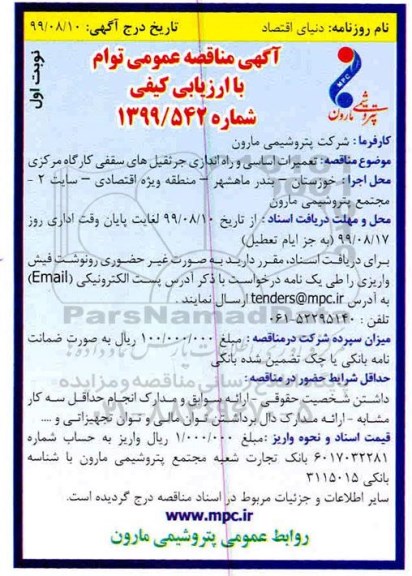 نام روزنامه: دنیای اقتصاد
تاریخ درج آگهی: ۹۹/۰۸/۱۰
نوبت اول
آگهی مناقصه عمومی توام
با ارزیابی کیفی
شماره ۱۳۹۹/۵۴۲
MPC
پتروشیمی مارون
کارفرما: شرکت پتروشیمی مارون
موضوع مناقصه: تعمیرات اساسی و راه اندازی جرثقیل های سقفی کارگاه مرکزی
محل اجرا: خوزستان – بندر ماهشهر – منطقه ویژه اقتصادی – سایت ۲ -
مجتمع پتروشیمی مارون
محل و مهلت دریافت اسناد: از تاریخ ۹۹/۰۸/۱۰ لغایت پایان وقت اداری روز
۹۹/۰۸/۱۷ (به جز ایام تعطیل)
برای دریافت اسناد، مقرر دارید به صورت غیر حضوری رونوشت فیش
واریزی را طی یک نامه درخواست با ذکر آدرس پست الکترونیکی (Email)
به آدرس tenders@mpc.ir ارسال نمایند.
تلفن: ۰۶۱-۵۲۲۹۵۱۴۰
میزان سپرده شرکت در مناقصه: مبلغ ۱۰۰/۰۰۰/۰۰۰ ریال به صورت ضمانت
نامه بانکی یا چک تضمین شده بانکی
حداقل شرایط حضور در مناقصه:
داشتن شخصیت حقوقی - ارائه سوابق و مدارک انجام حداقل سه کار
مشابه - ارائه مدارک دال بر داشتن توان مالی و توان تجهیزاتی و ....
قیمت اسناد و نحوه واریز: مبلغ ۱/۰۰۰/۰۰۰ ریال واریز به حساب شماره
۶۰۱۷۰۳۲۲۸۱ بانک تجارت شعبه مجتمع پتروشیمی مارون با شناسه
بانکی ۳۱۱۵۰۱۵
سایر اطلاعات و جزئیات مربوط در اسناد مناقصه درج گردیده است.
www.mpc.ir
روابط عمومی پتروشیمی مارون